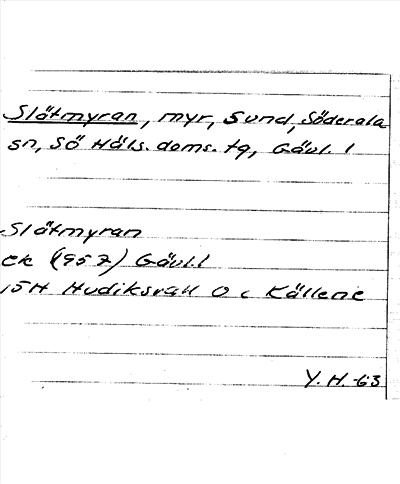 Slåtmyran, myr, Sund, Söderala
sn, Sö Häls. doms. tg, Gävl. l
Slåtmyran
ek (1957) Gävl. l
15H Hudiksvall 0 c Källene
Y. H. -63